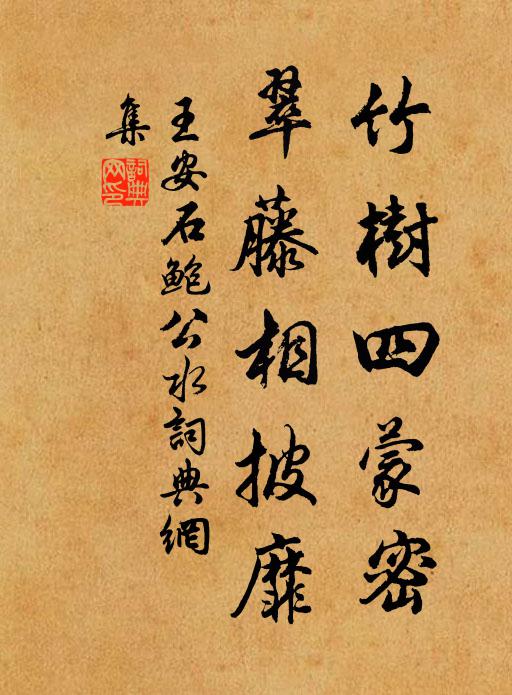 竹樹四蒙密
翠藤相披靡
王安石鲍公水詞典網
集
詞典網印